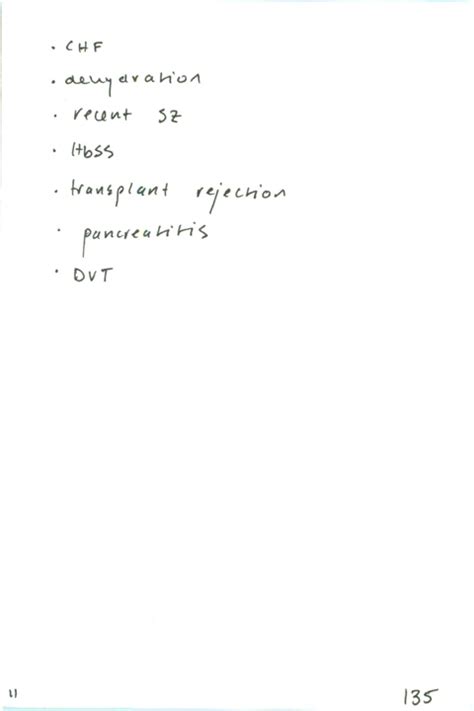 · CHF
· dehydration
· recent SZ
· HbSS
· transplant rejection
· pancreatitis
· DVT
135